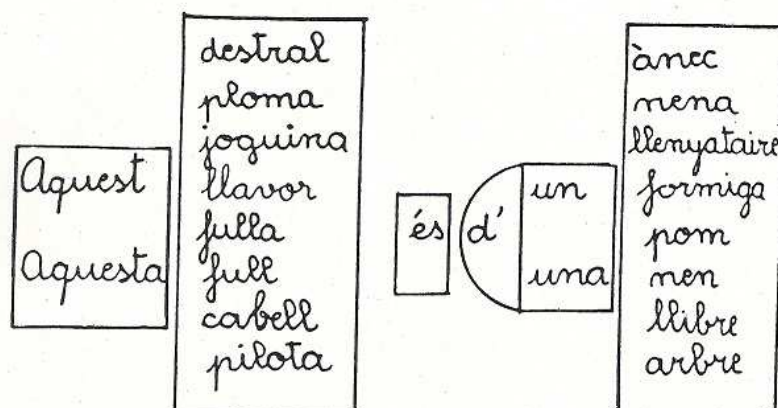 Aquest
Aquesta
destral
ploma
joguina
llavor
fulla
full
cabell
pilota
és
d'
un
una
ànec
nena
llenyataire
formiga
pom
nen
llibre
arbre